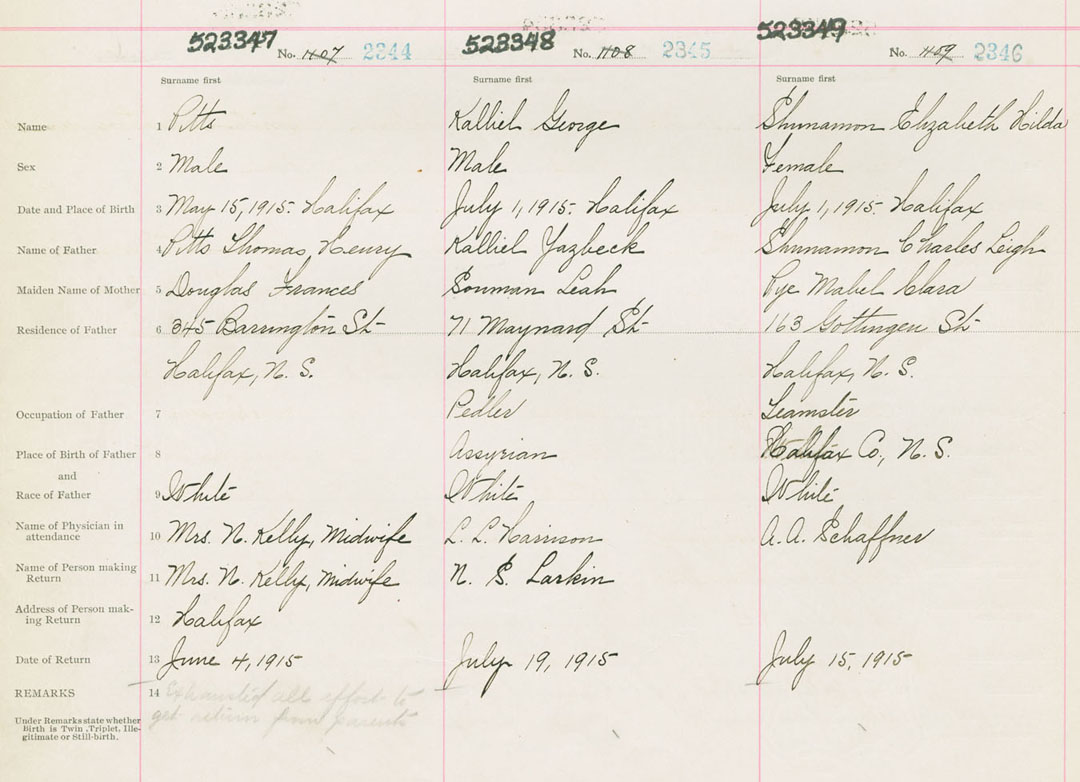 523347
No. 1407 2344
523348
No. 1108 2345
523349
No. 1409 2346
Surname first
Surname first
Surname first
Name 1 Pitts
Kalliel George
Shunamon Elizabeth Hilda
Sex 2 Male
Male
Female
Date and Place of Birth 3 May 15, 1915. Halifax
July 1, 1915. Halifax
July 1, 1915. Halifax
Name of Father 4 Pitts Thomas, Henry
Kalliel Yazbeck
Shunamon Charles Leigh
Maiden Name of Mother 5 Douglas Frances
Souman Leah
Pye Mabel Clara
Residence of Father 6 345 Barrington St
71 Maynard St
163 Gottingen St
Halifax, N. S.
Halifax, N. S.
Halifax, N. S.
Occupation of Father 7
Pedler
Teamster
Place of Birth of Father 8
Assyrian
Halifax Co., N. S.
and
Race of Father 9 White
White
White
Name of Physician in
attendance 10 Mrs. N. Kelly, Midwife
L. L. Harrison
A. A. Schaffner
Name of Person making
Return 11 Mrs. N. Kelly, Midwife
N. S. Larkin
Address of Person mak-
ing Return 12 Halifax
Date of Return 13 June 4, 1915
July 19, 1915
July 15, 1915
REMARKS 14 Exhausted all effort to
get return from parents
Under Remarks state whether
Birth is Twin, Triplet, Ille-
gitimate or Still-birth.